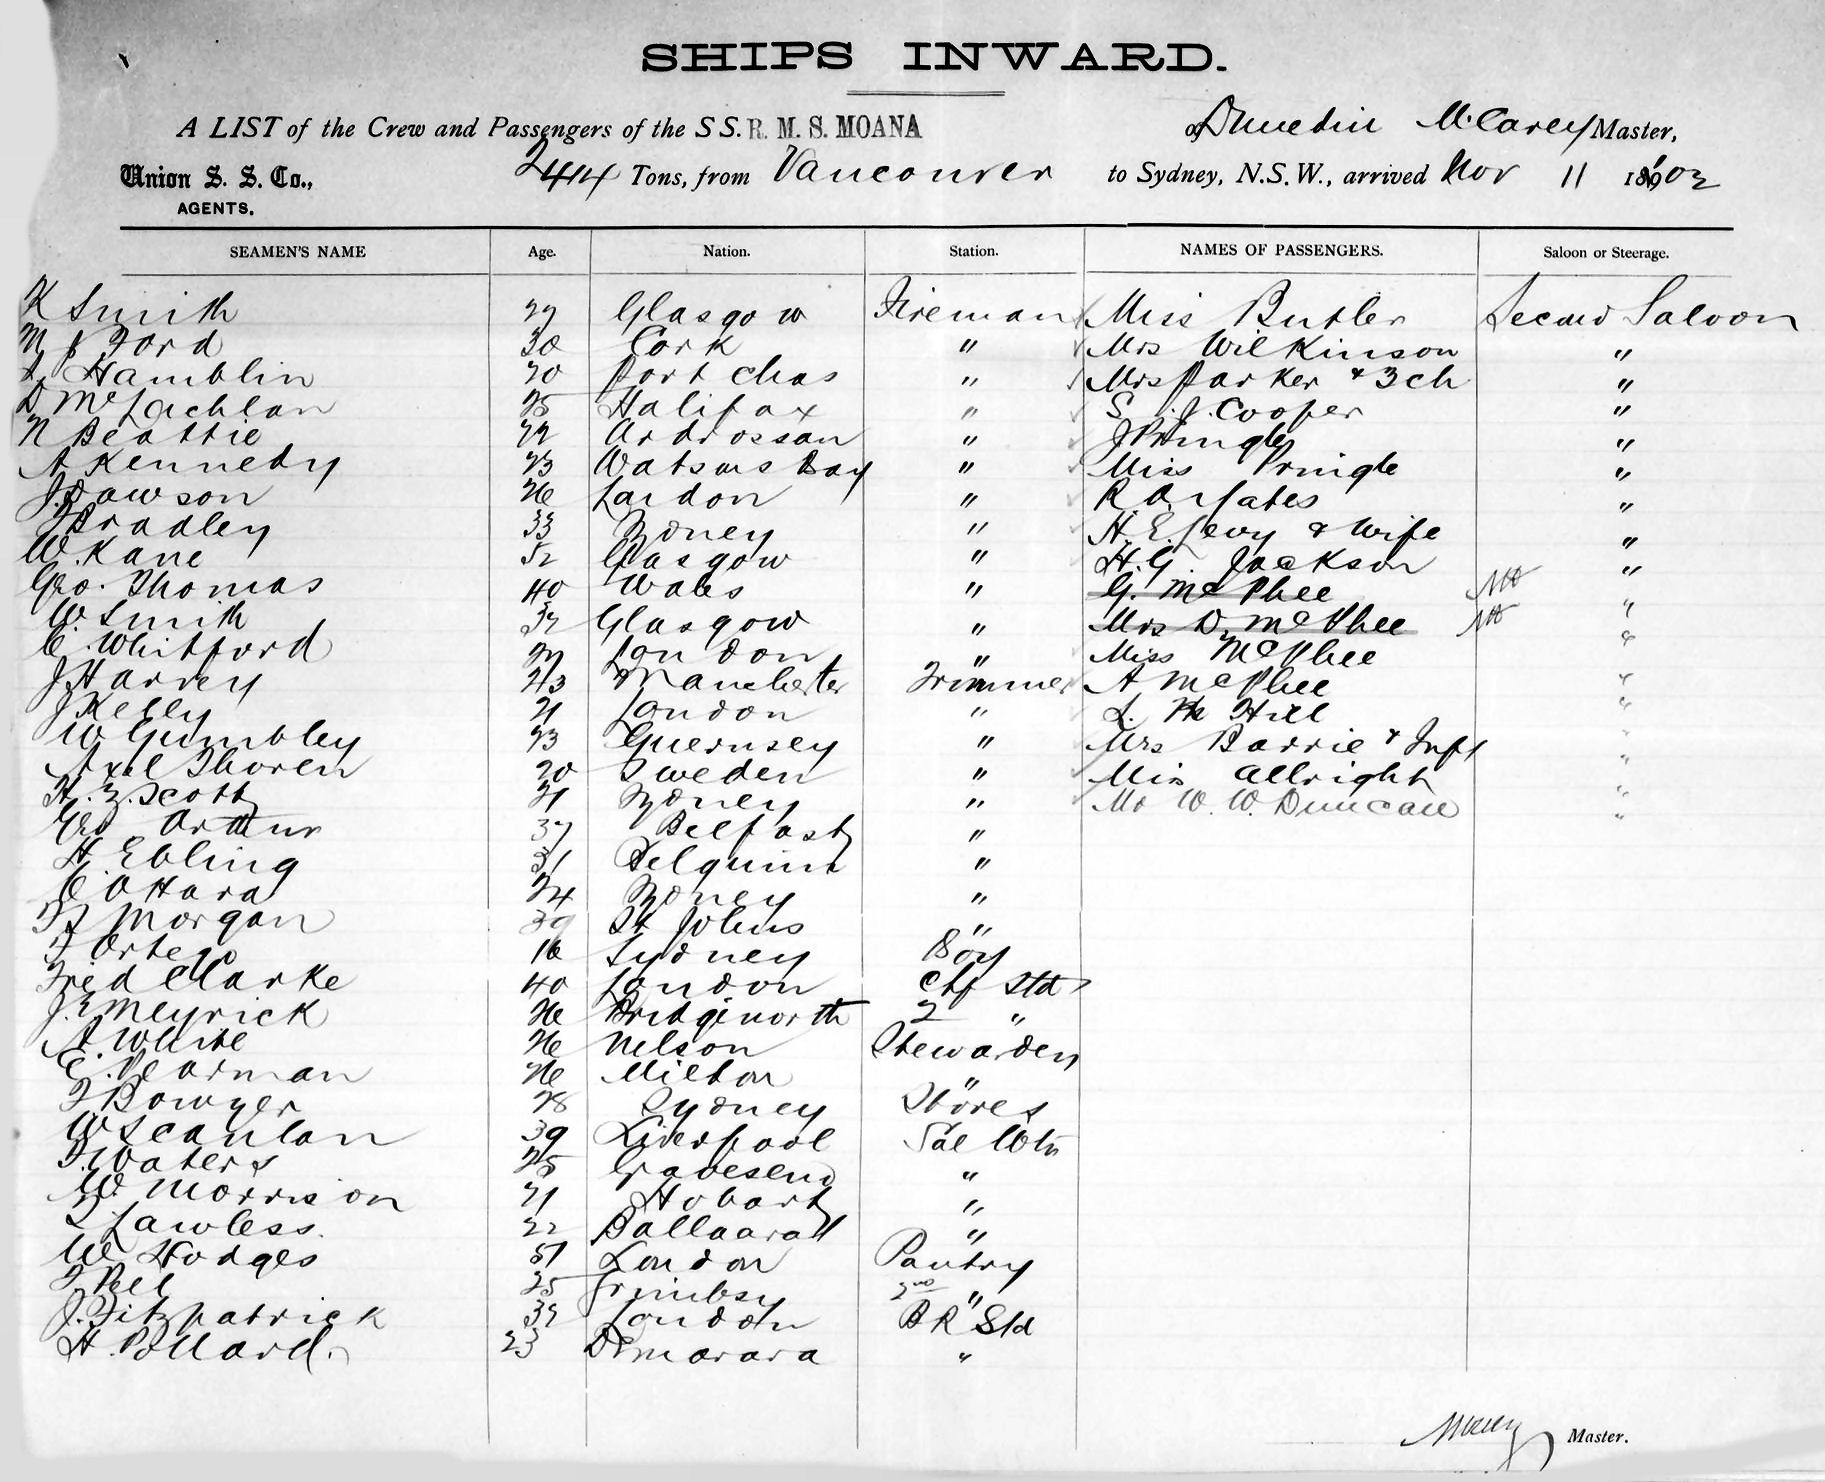 SHIPS INWARD.
A LIST of the Crew and Passengers of the SS. R. M. S. MOANA of Dunedin M. Carey Master,
Union S. S. Co., 2414 Tons, from Vancouver to Sydney, N.S.W., arrived Nov 11 1903
AGENTS.
SEAMEN'S NAME Age. Nation. Station. NAMES OF PASSENGERS. Saloon or Steerage.
K Smith Glasgow Fireman Miss Butler Second Saloon
M J Ford 30 Cork " Mrs Wilkinson "
Hamblin 20 Port Chas " Mrs Parker & 3 ch "
D McLachlan 25 Halifax " S. J. Cooper "
N Beattie 22 Ardrossan " J Pringle "
A Kennedy 23 Watsons Bay " Miss Pringle "
J. Dawson 26 London " R. A. Yates "
Bradley 33 Sydney " H. E. Levy & Wife "
W. Kane 52 Glasgow " H. G. Jackson "
Geo. Thomas 40 Wales " G. McPhee "
W. Smith Glasgow " Mrs D. McPhee "
C. Whitford London " Miss McPhee "
J Harvey 23 Manchester Trimmer A McPhee "
J Kelly 21 London " L. Hill "
W Gumbley 23 Guernsey " Mrs Barrie & Inft "
Axel Thoren 20 Sweden " Miss Allright "
Scott 21 Sydney " Mr W. W. Duncan "
Geo Arthur 37 Belfast "
H. Ebling 31 Belguim "
C. O Hara 24 Sydney "
Morgan 39 St Johns "
16 Sydney Boy
Fred Clarke 40 London Chf Std
J. E Meyrick 26 Bridgenorth 2 "
A. White 26 Nelson Stewardess
E. Pearman 26 Milton "
F Bowyer 28 Sydney Stores
W Scanlan 39 Liverpool Sal Wtr
F. Waters 25 Gravesend "
W. Morrison 21 Hobart "
Lawless. 22 Ballaarat "
W Hodges 51 London Pantry
25 Grimbsy 2nd "
J. Fitzpatrick London B R Std
H. Pollard. 23 Demarara "
Master.